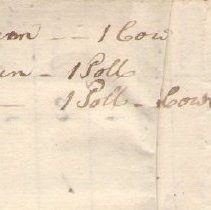 — 1 Cow
— 1 Poll
— 1 Poll — Cow